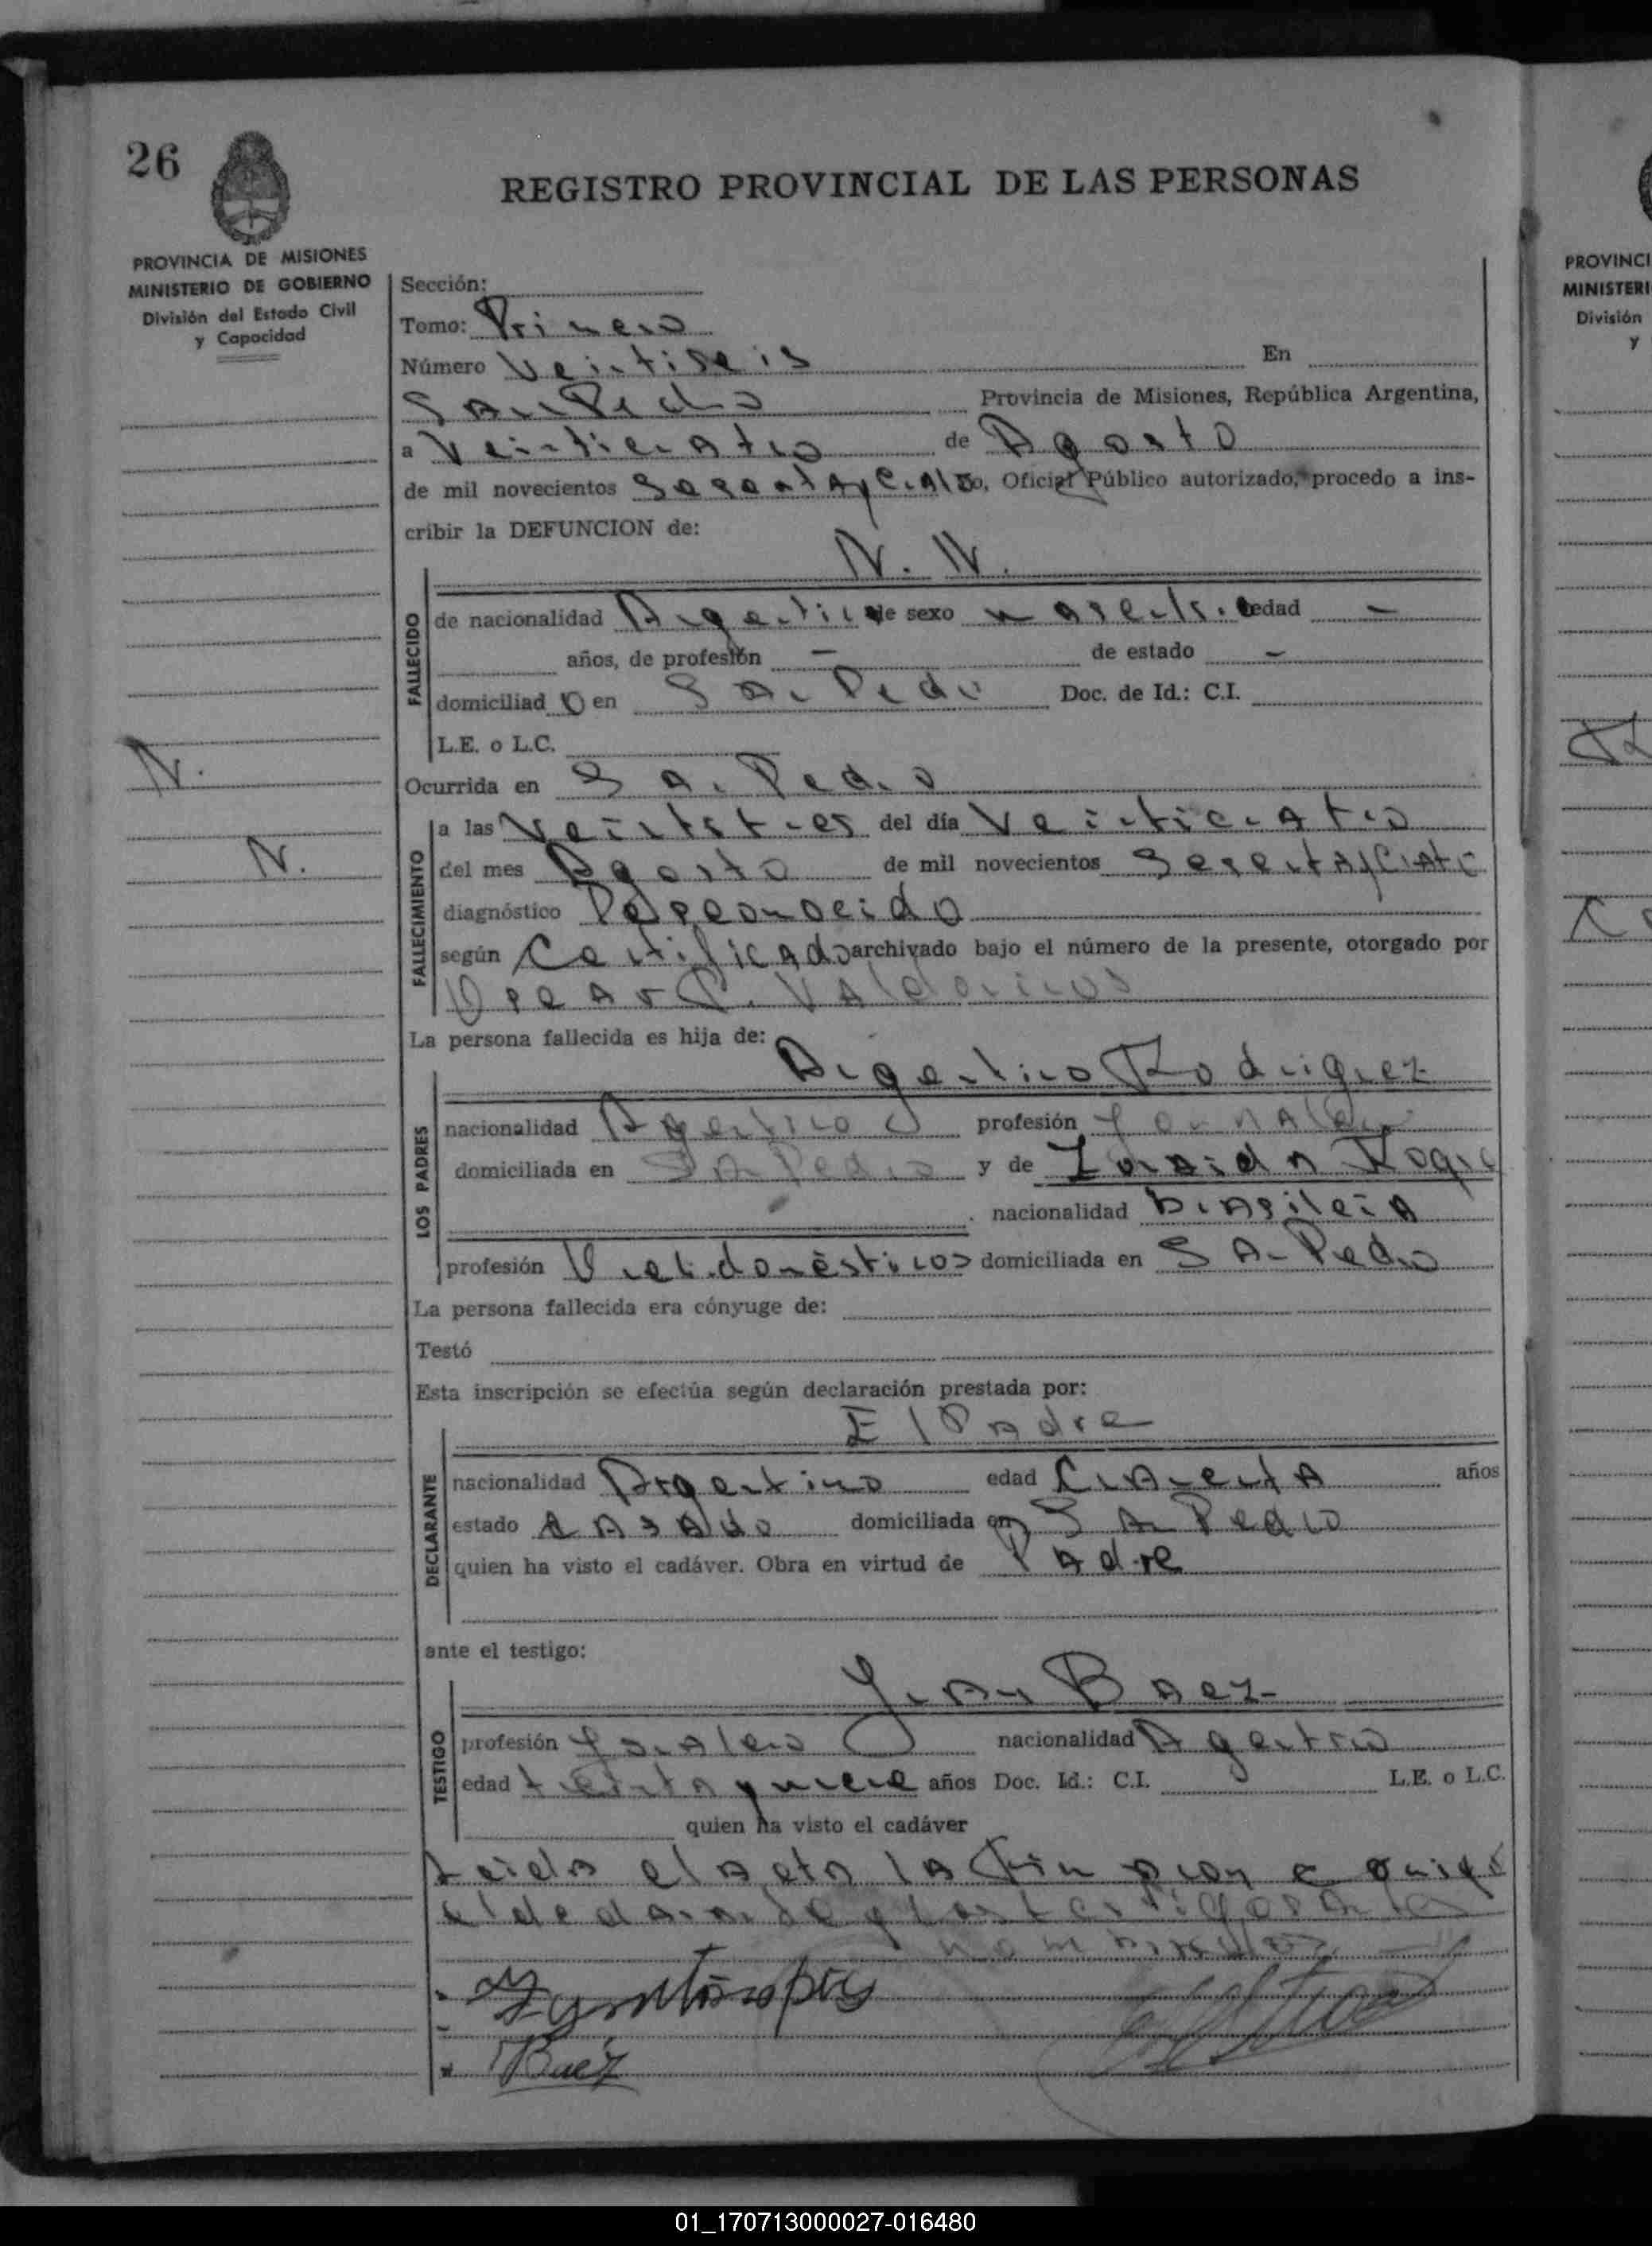 26
REGISTRO PROVINCIAL DE LAS PERSONAS
PROVINCIA DE MISIONES
MINISTERIO DE GOBIERNO
División del Estado Civil
y Capacidad
Sección:
Tomo: Primero
Número Veintiseis En
San Pedro Provincia de Misiones, República Argentina,
a Veinticuatro de Agosto
de mil novecientos Oficial Público autorizado, procedo a ins-
cribir la DEFUNCION de:
N. N.
FALLECIDO
de nacionalidad Argentino de sexo edad —
años, de profesión — de estado —
domiciliado en San Pedro Doc. de Id.: C.I.
L.E. o L.C.
N.
N.
Ocurrida en San Pedro
FALLECIMIENTO
a las del día Veinticuatro
del mes Agosto de mil novecientos
diagnóstico
según Certificado archivado bajo el número de la presente, otorgado por
La persona fallecida es hija de:
Argentino Rodriguez
LOS PADRES
nacionalidad Argentino profesión
domiciliada en San Pedro y de
nacionalidad
profesión domésticos domiciliada en San Pedro
La persona fallecida era cónyuge de:
Testó
Esta inscripción se efectúa según declaración prestada por:
El Padre
DECLARANTE
nacionalidad Argentino edad Cuarenta años
estado casado domiciliada en San Pedro
quien ha visto el cadáver. Obra en virtud de Padre
ante el testigo:
Juan Baez
TESTIGO
profesión nacionalidad Argentino
edad treinta y nueve años Doc. Id.: C.I. L.E. o L.C.
quien ha visto el cadáver
Leida el acta la
nombrados
Baez
PROVINCI
MINISTERI
División
y
01_170713000027-016480